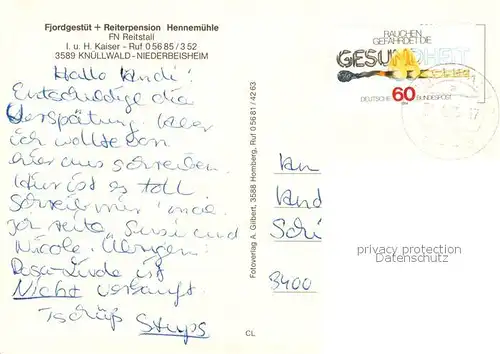 Fjordgestüt + Reiterpension Hennemühle
FN Reitstall
I. u. H. Kaiser - Ruf 0 56 85 / 3 52
3589 KNÜLLWALD - NIEDERBEISHEIM
Hallo
Entschuldige die
Verspätung. Aber
ich wollte von
hier aus schreiben.
Hier ist es toll
Schreib mir mal.
Ich reite Susi und
Nicole. Übrigens
Rosa-Linde ist
Nicht verkauft.
Tschüß Steups
CL
Fotoverlag A. Gilbert, 3588 Homberg, Ruf 0 56 81 / 42 63
RAUCHEN
GEFÄHRDET DIE
GESUNDHEIT
DEUTSCHE 60 BUNDESPOST
An
Schi
3400
privacy protection
Datenschutz